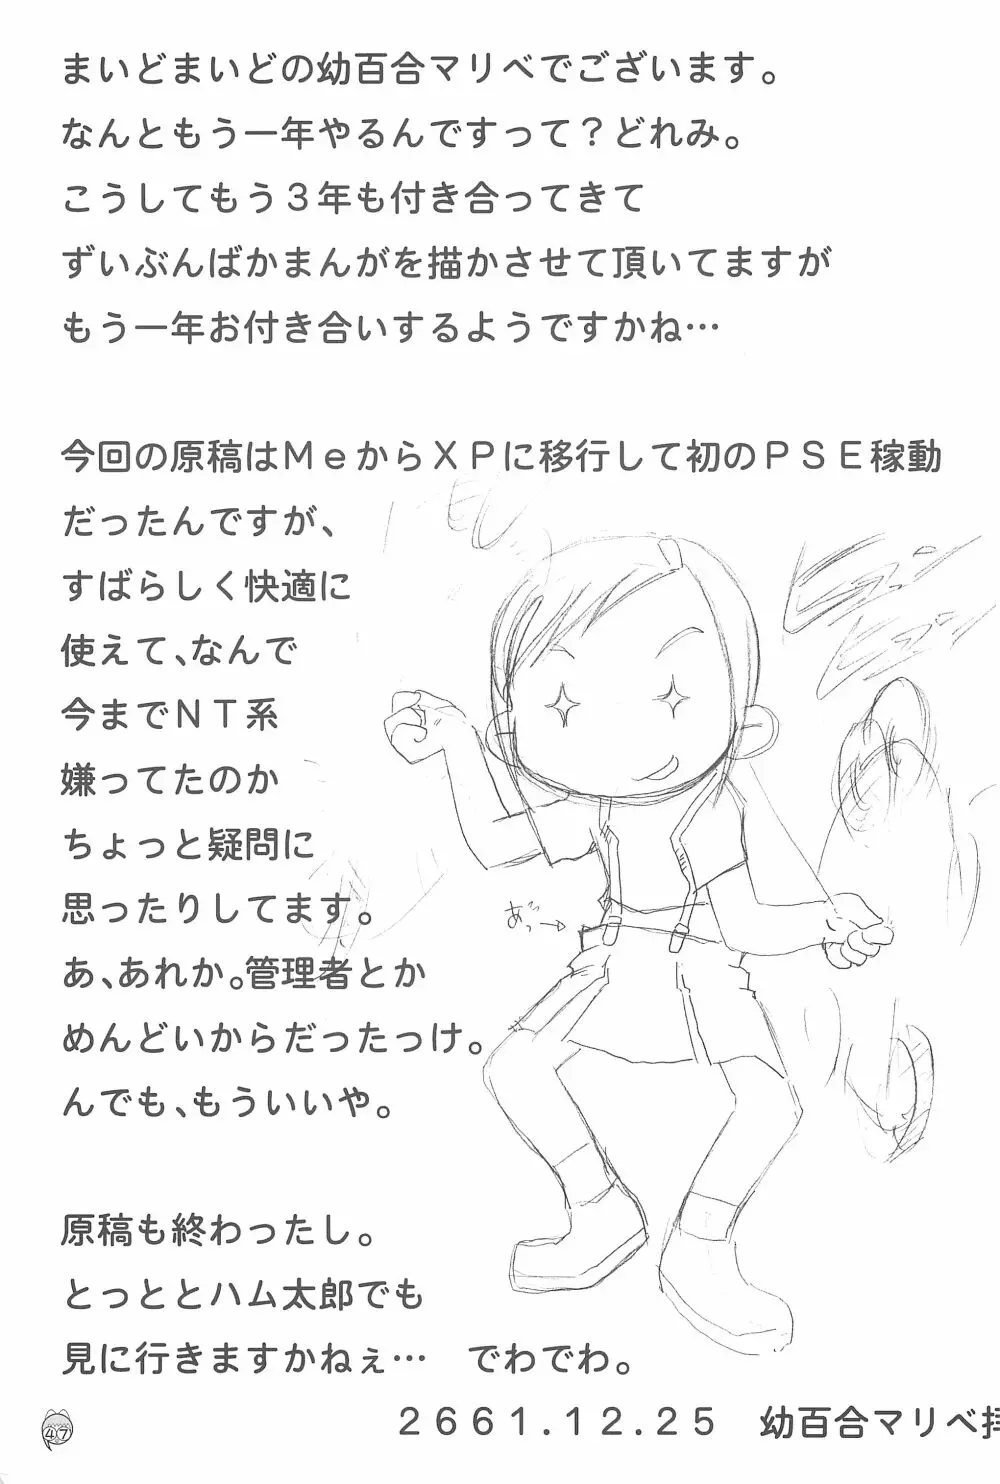 まいどまいどの幼百合マリベでございます。
なんともう一年やるんですって？どれみ。
こうしてもう３年も付き合ってきて
ずいぶんばかまんがを描かさせて頂いてますが
もう一年お付き合いするようですかね…
今回の原稿はＭｅからＸＰに移行して初のＰＳＥ稼動
だったんですが、
すばらしく快適に
使えて、なんで
今までＮＴ系
嫌ってたのか
ちょっと疑問に
思ったりしてます。
あ、あれか。管理者とか
めんどいからだったっけ。
んでも、もういいや。
原稿も終わったし。
とっととハム太郎でも
見に行きますかねぇ…　でわでわ。
２６６１.１２.２５　幼百合マリベ拝
47